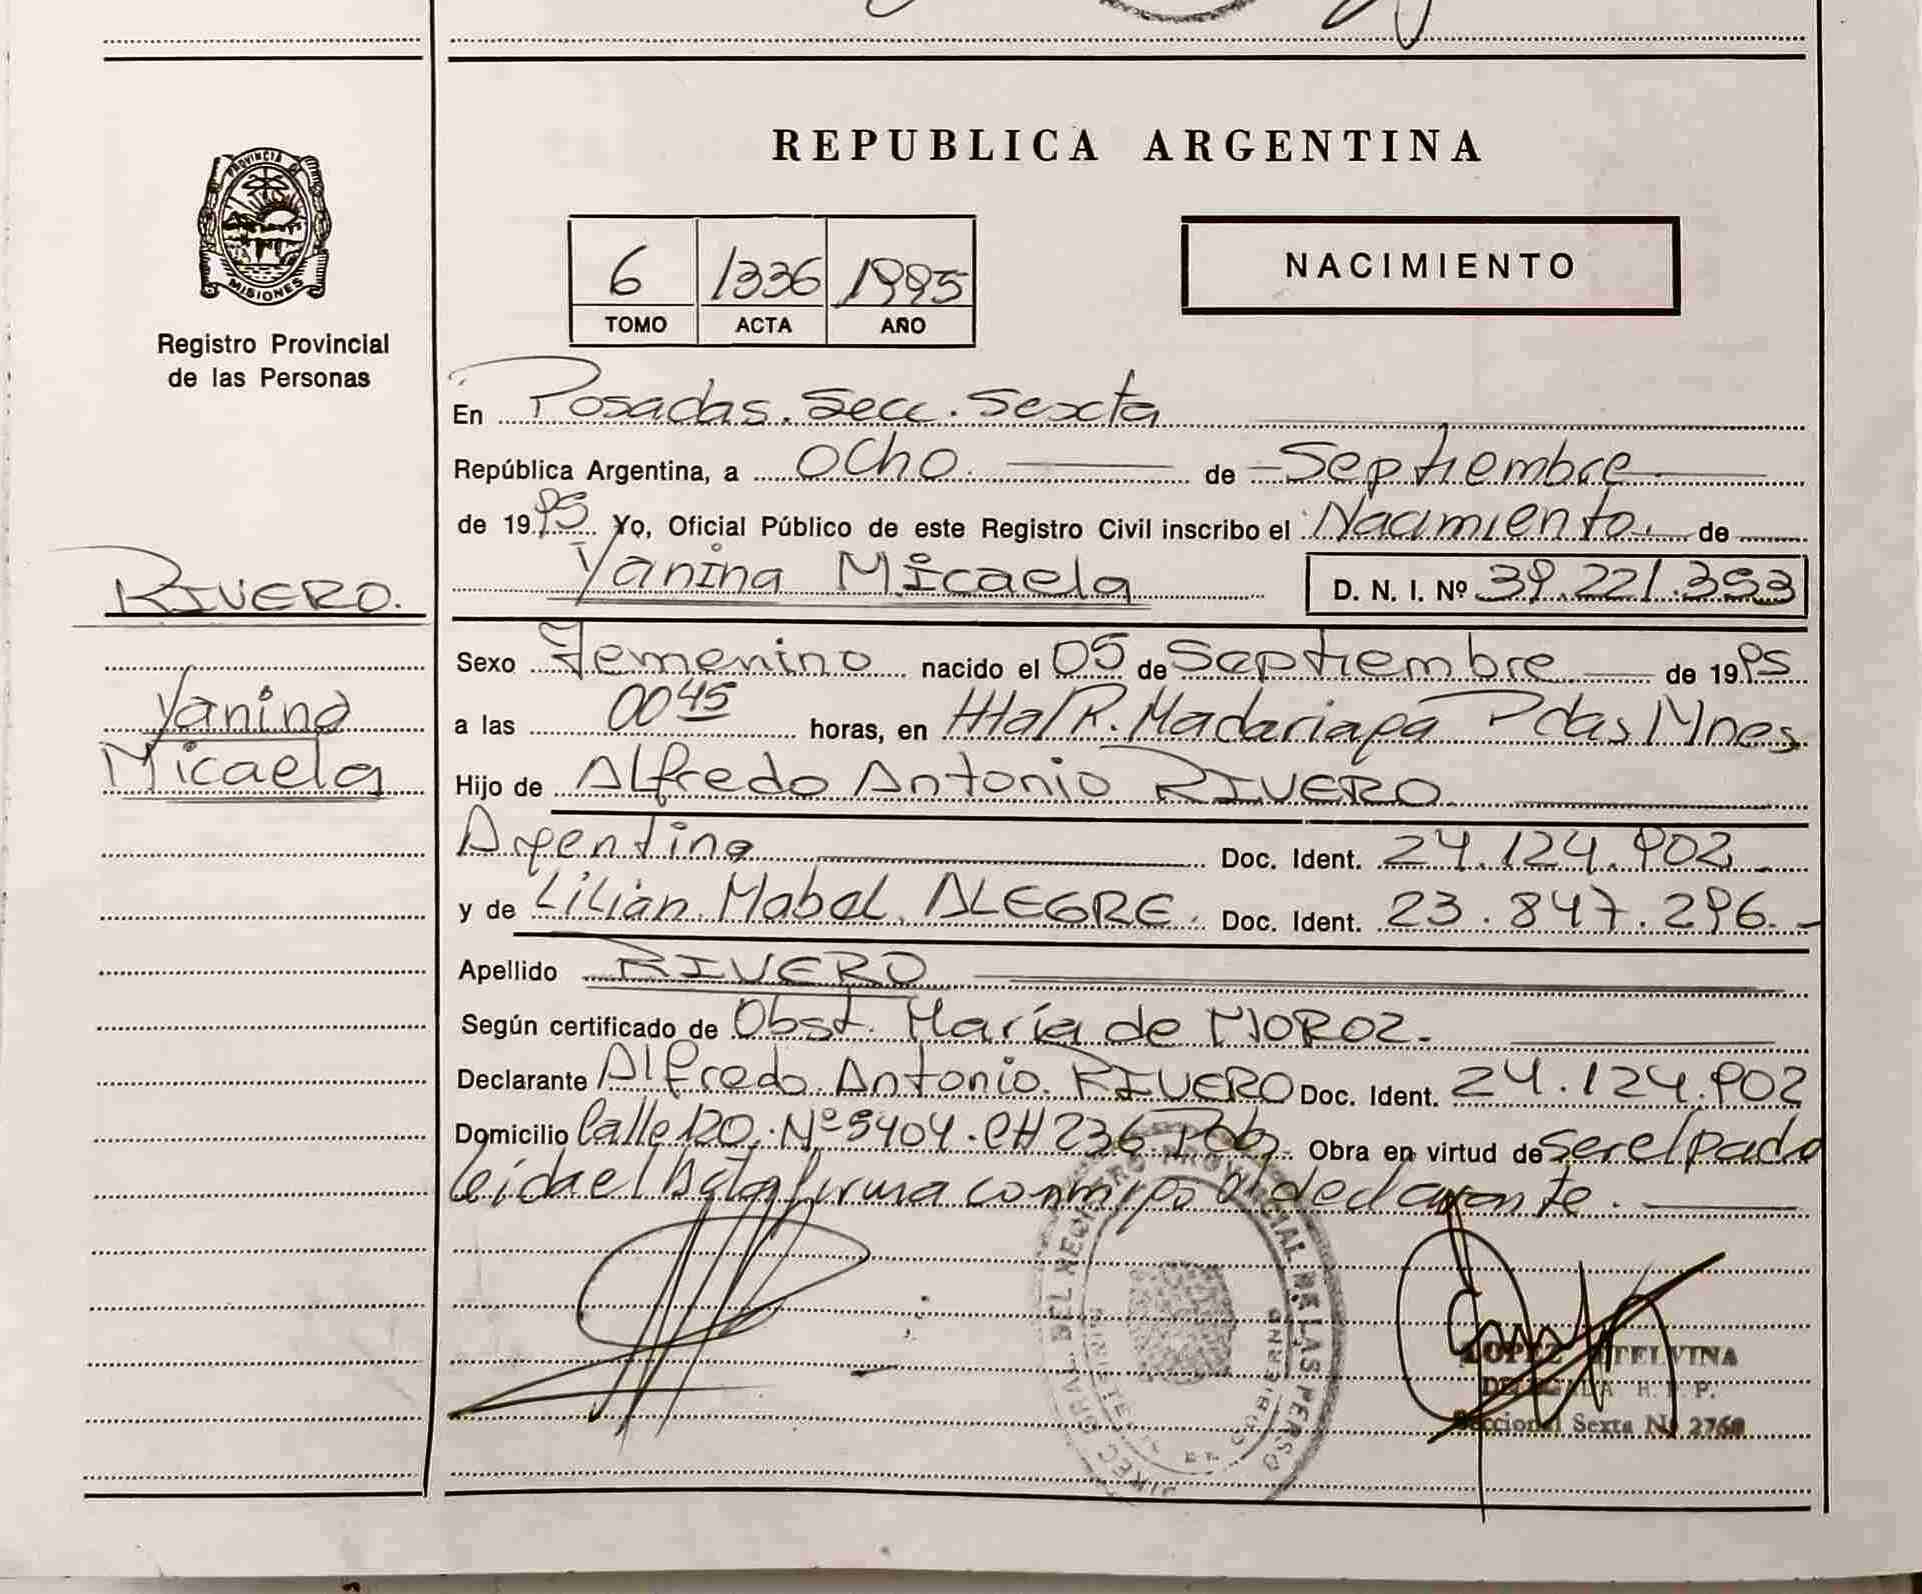 REPUBLICA ARGENTINA
PROVINCIA DE
MISIONES
Registro Provincial
de las Personas
6 1336 1995
TOMO ACTA AÑO
NACIMIENTO
En Posadas. Secc. Sexta
República Argentina, a ocho. de Septiembre
de 1995 Yo, Oficial Público de este Registro Civil inscribo el Nacimiento. de
Yanina Micaela D. N. I. Nº 39.221.353
RIVERO.
Yanina
Micaela
Sexo Femenino nacido el 05 de Septiembre de 1995
a las 0045 horas, en Htal R. Madariaga Pdas Mnes
Hijo de Alfredo Antonio RIVERO
Argentina Doc. Ident. 24.124.902
y de Lilian Mabel ALEGRE. Doc. Ident. 23.847.296.-
Apellido RIVERO
Según certificado de Obst. María de MOROZ.
Declarante Alfredo Antonio RIVERO Doc. Ident. 24.124.902
Domicilio Calle 120. Nº 5404. CH 236 Obra en virtud de
leida el Acta firma conmigo el declarante.
LOPEZ ETELVINA
DELEGADA R. P. P.
Seccional Sexta Nº